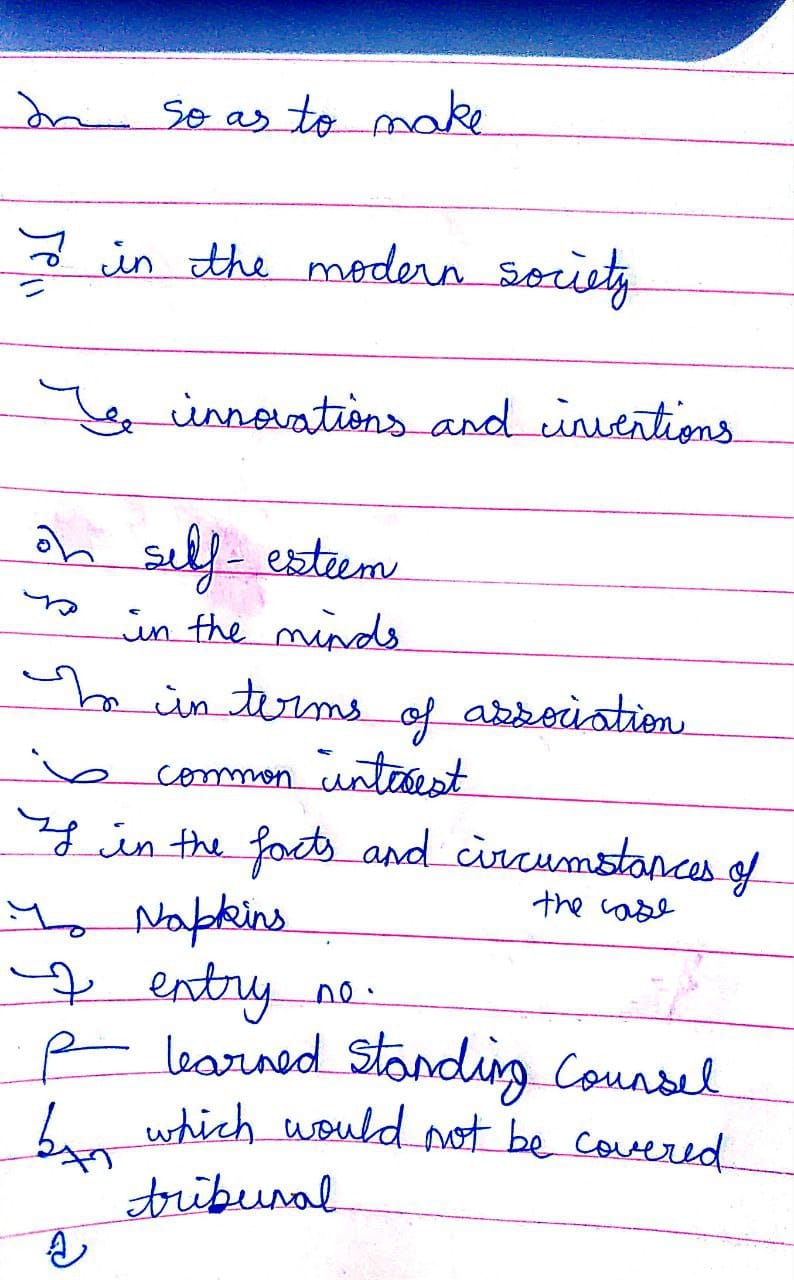 so as to make
in the modern society
innovations and inventions
self-esteem
in the minds
in terms of association
common interest
in the facts and circumstances of
the case
Napkins
entry no.
learned Standing Counsel
which would not be covered
tribunal